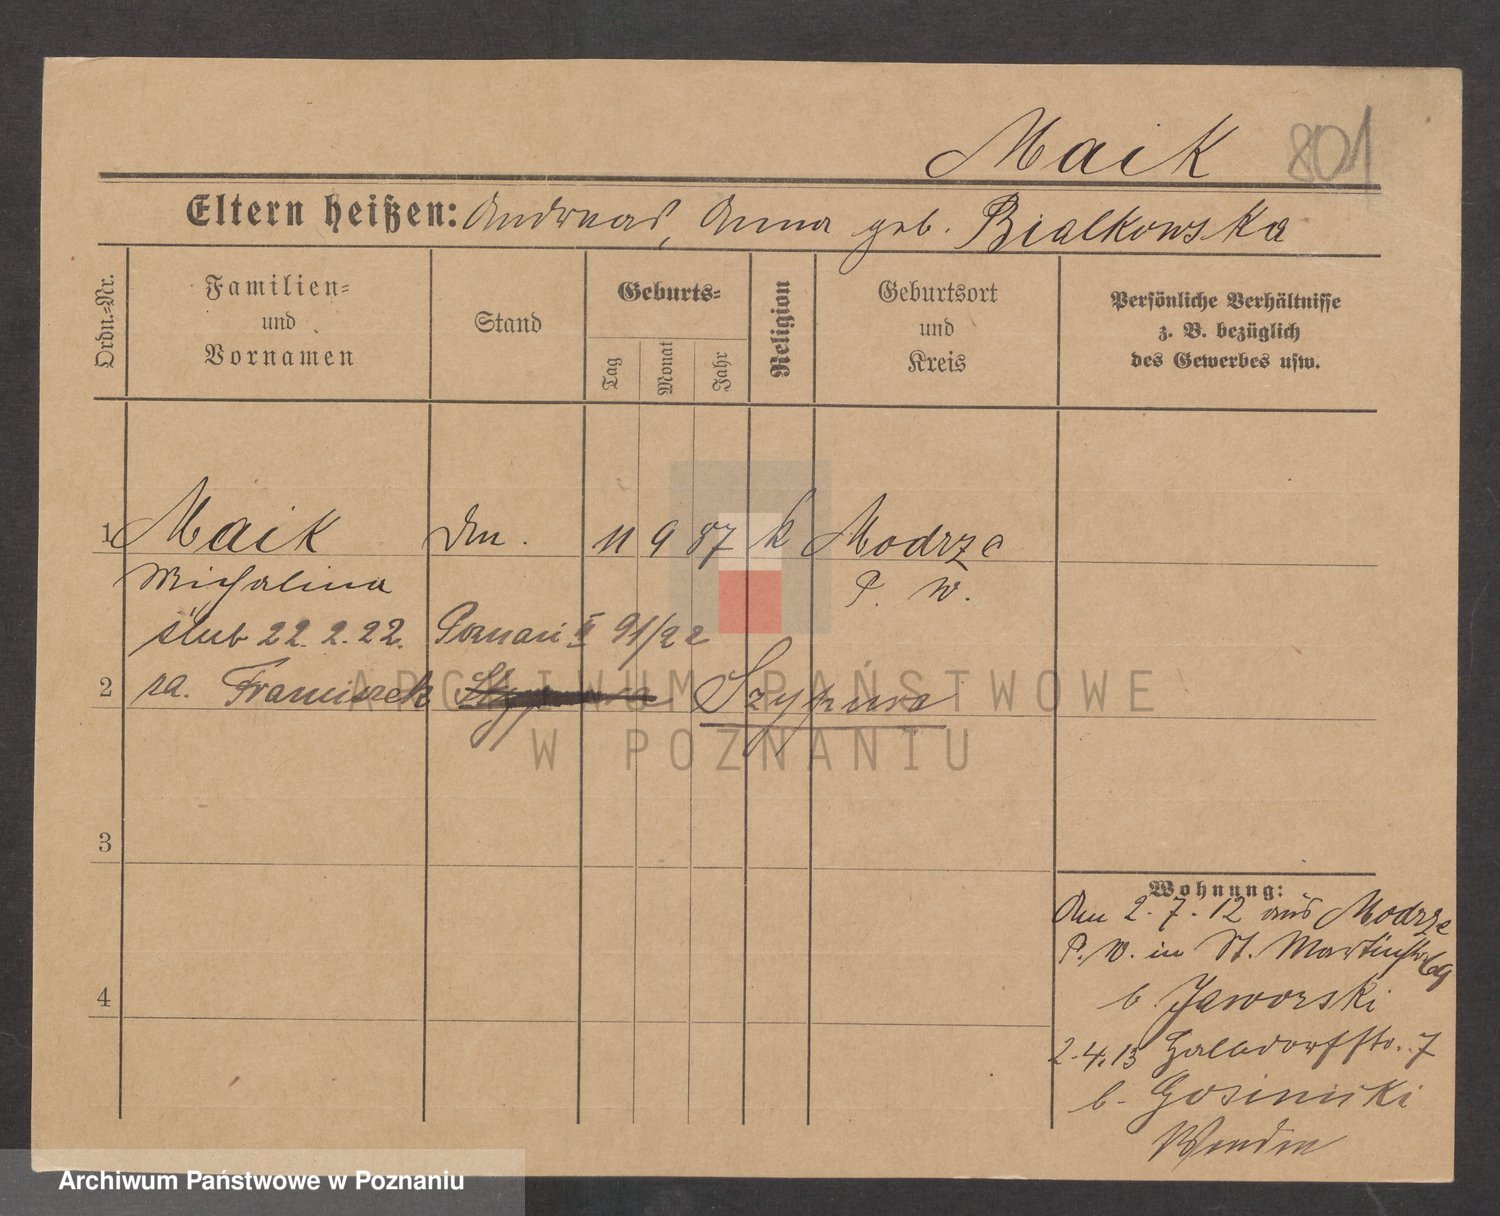 Maik 801
Eltern heißen: Andreas, Anna geb. Bialkowska
Ordn.-Nr.
Familien-
und
Vornamen
Stand
Geburts-
Tag
Monat
Jahr
Religion
Geburtsort
und
Kreis
Persönliche Verhältnisse
z. B. bezüglich
des Gewerbes usw.
1 Maik 11 9 87 k Modrze
Michalina P. W.
ślub 22. 2. 22. Poznań II 91/22
2 za. Franciszek Szypura
3
4
Wohnung:
2. 7. 12 aus Modrze
P. W. in St. Martinstr. 69
b. Jaworski
2. 4. 13 Halbdorfstr. 7
b. Gosinski
ARCHIWUM PAŃSTWOWE
W POZNANIU
Archiwum Państwowe w Poznaniu